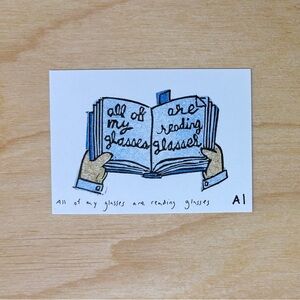 all of
my
glasses
are
reading
glasses
All of my glasses are reading glasses
A1